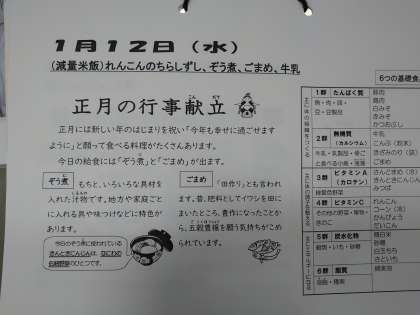 1月12日（水）
（減量米飯）れんこんのちらしずし、ぞう煮、ごまめ、牛乳
正月の行事献立
正月には新しい年のはじまりを祝い「今年も幸せに過ごせます
ように」と願って食べる料理がたくさんあります。
今日の給食には「ぞう煮」と「ごまめ」が出ます。
ぞう煮
もちと、いろいろな具材を
入れた汁物です。地方や家庭ごと
に入れる具や味つけなどに特色が
あります。
今日のぞう煮に使われている
きんときにんじんは、なにわの
伝統野菜のひとつです。
ごまめ
「田作り」とも言われ
ます。昔、肥料としてイワシを田に
まいたところ、豊作になったことか
ら、五穀豊穣を願う気持ちがこめ
られています。
6つの基礎食
1群 たんぱく質
魚・肉・卵・
豆・豆製品
豚肉
鶏肉
白みそ
かつおぶし
2群 無機質
（カルシウム）
牛乳・乳製品・海そう
牛乳
こんぶ（粉末）
きざみのり（袋）
ごまめ
3群 ビタミンA
（カロテン）
緑黄色野菜
さんどまめ（冷）
きんときにんじん
みつば
4群 ビタミンC
その他の野菜・果物・
きのこ
れんこん
コーン（冷）
かんぴょう
だいこん
5群 炭水化物
穀類・いも・砂糖
精白米
砂糖
白玉もち
さといも
6群 脂質
油脂・種実
綿実油